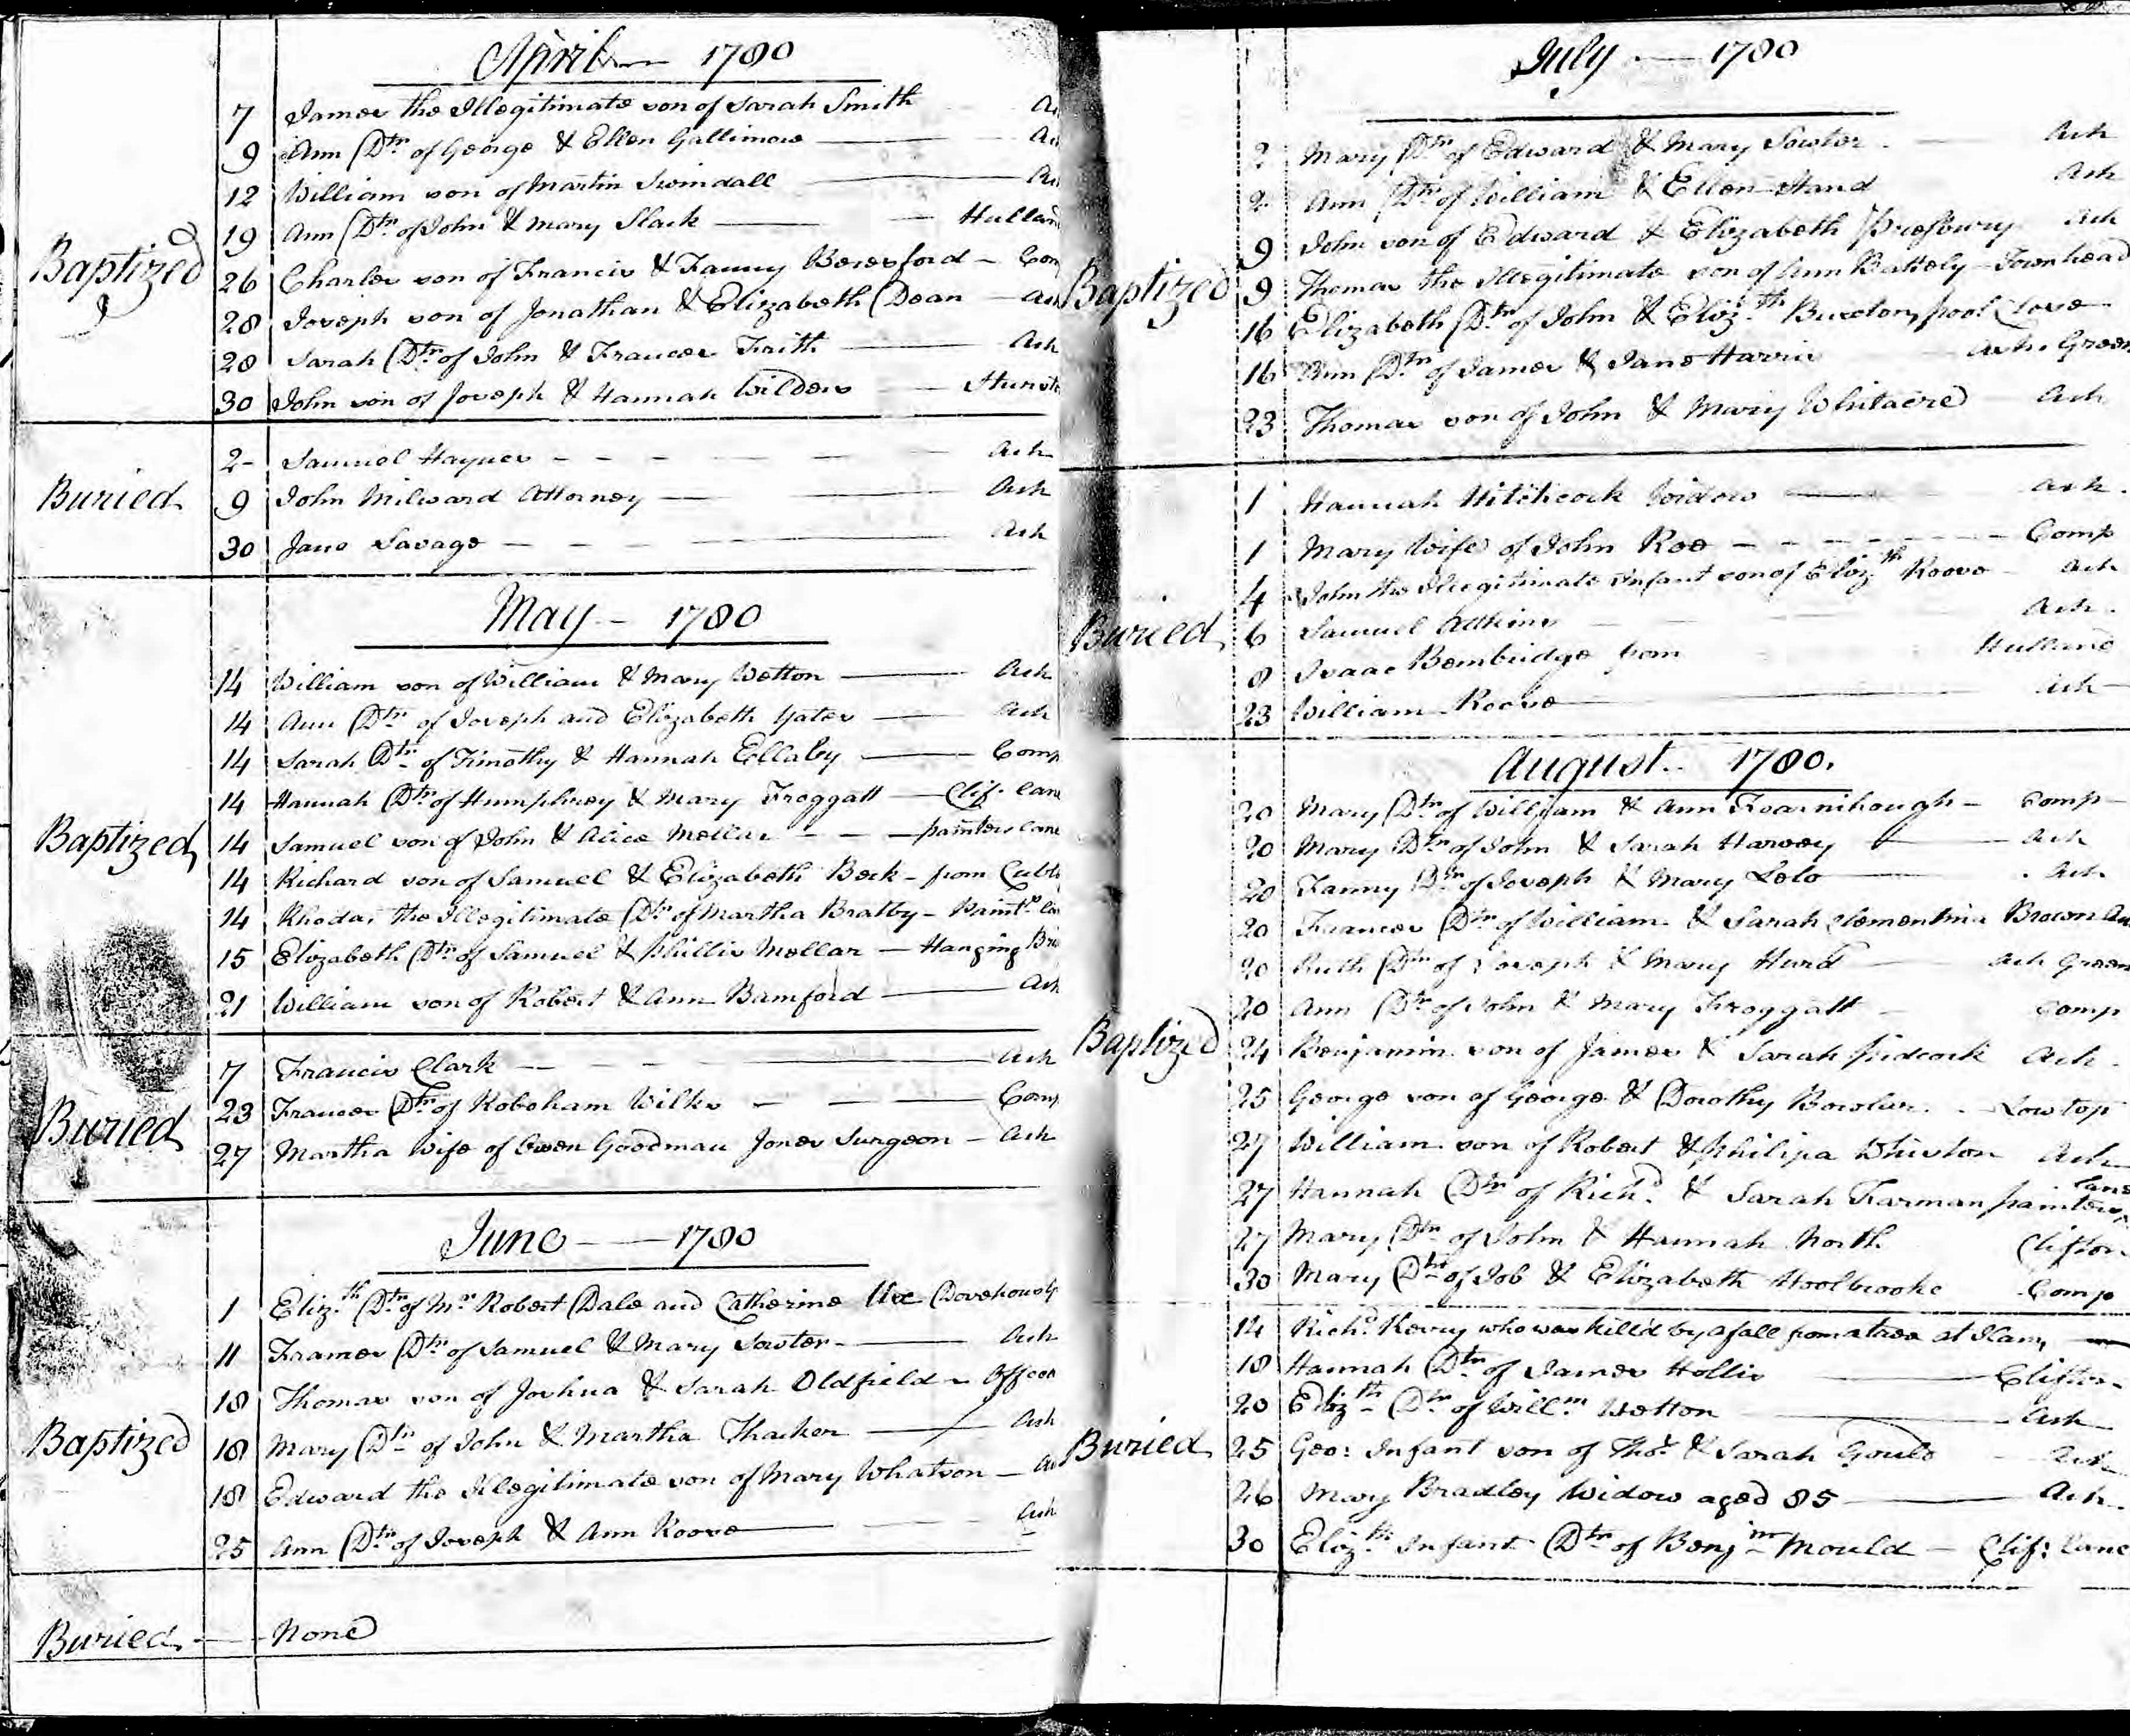 April 1780
Baptized
7 James the Illegitimate son of Sarah Smith
9 Ann Dtr of George & Ellen Gallimore
12 William son of Martin Swindall
19 Ann Dtr of John & Mary Slack Hulland
26 Charles son of Francis & Fanny Beresford Com
28 Joseph son of Jonathan & Elizabeth Dean
28 Sarah Dtr of John & Frances Frith Ash
30 John son of Joseph & Hannah Wilders
Buried
2 Samuel Haynes Ash
9 John Milward Attorney Ash
30 Jane Savage Ash
May 1780
Baptized
14 William son of William & Mary Wetton Ash
14 Ann Dtr of Joseph and Elizabeth Yates Ash
14 Sarah Dtr of Timothy & Hannah Ellaby Comp
14 Hannah Dtr of Humphrey & Mary Froggatt Clif. lane
14 Samuel son of John & Alice Mellar painters lane
14 Richard son of Samuel & Elizabeth Beck from Cubl
14 Rhoda, the Illegitimate Dtr of Martha Bratby
15 Elizabeth Dtr of Samuel & phillis Mellar Hanging Bri
21 William son of Robert & Ann Bamford Ash
Buried
7 Francis Clark Ash
23 Frances Dtr of Roboham Wilks Comp
27 Martha Wife of Owen Goodman Jones Surgeon Ash
June 1780
Baptized
1 Eliz.th Dtr of Mr Robert Dale and Catherine Ux
11 Frances Dtr of Samuel & Mary Sowter Ash
18 Thomas son of Joshua & Sarah Oldfield
18 Mary Dtr of John & Martha Thacker Ash
18 Edward the Illegitimate son of Mary Whatson
25 Ann Dtr of Joseph & Ann Roove Ash
Buried None
July 1780
Baptized
2 Mary Dtr of Edward & Mary Sowter Ash
2 Ann Dtr of William & Ellen Hand Ash
9 John son of Edward & Elizabeth Presbury Ash
9 Thomas the Illegitimate son of Ann Battely Townhead
16 Elizabeth Dtr of John & Eliz.th Buxton, pool Close
16 Ann Dtr of James & Jane Harris Ash. Green
23 Thomas son of John & Mary Whitacre Ash
Buried
1 Hannah Hitchcock Widow Ash.
1 Mary Wife of John Roe Comp
4 John the Illegitimate Infant son of Eliz.th Roove Ash
6 Samuel Atkins Ash.
8 Isaac Bembridge from Hulland
23 William Roove Ash
August 1780.
Baptized
20 Mary Dtr of William & Ann Fearnihough Comp
20 Mary Dtr of John & Sarah Harvey Ash
20 Fanny Dtr of Joseph & Mary Ash
20 Frances Dtr of William & Sarah Clementina Brown
20 Ruth Dtr of Joseph & Mary Hurd Ash Green
20 Ann Dtr of John & Mary Froggatt Comp
24 Benjamin son of James & Sarah pidcock Ash.
25 George son of George & Dorothy Bowlar Lowtop
27 William son of Robert & philipa Whiston Ash
27 Hannah Dtr of Rich.d & Sarah Farman painters lane
27 Mary Dtr of John & Hannah North Clifton
30 Mary Dtr of Job & Elizabeth Hoolbrooke Comp
Buried
14 Rich.d Kerry who was kill'd by a fall from a tree at Ilam,
18 Hannah Dtr of James Hollis Clifton
20 Eliz.th Dtr of Will.m Wetton Ash
25 Geo: Infant son of Thos. & Sarah Gould Ash
26 Mary Bradley Widow aged 85 Ash.
30 Eliz.th Infant Dtr of Benj.m Mould Clif: lane